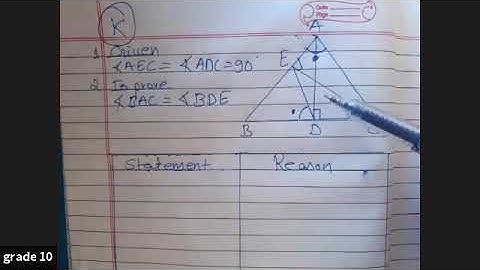 K
Date
Page
1. Given
∢AEC = ∢ADC = 90°
2. To prove
∢BAC = ∢BDE
A
E
B
D
C
Statement
Reason
grade 10